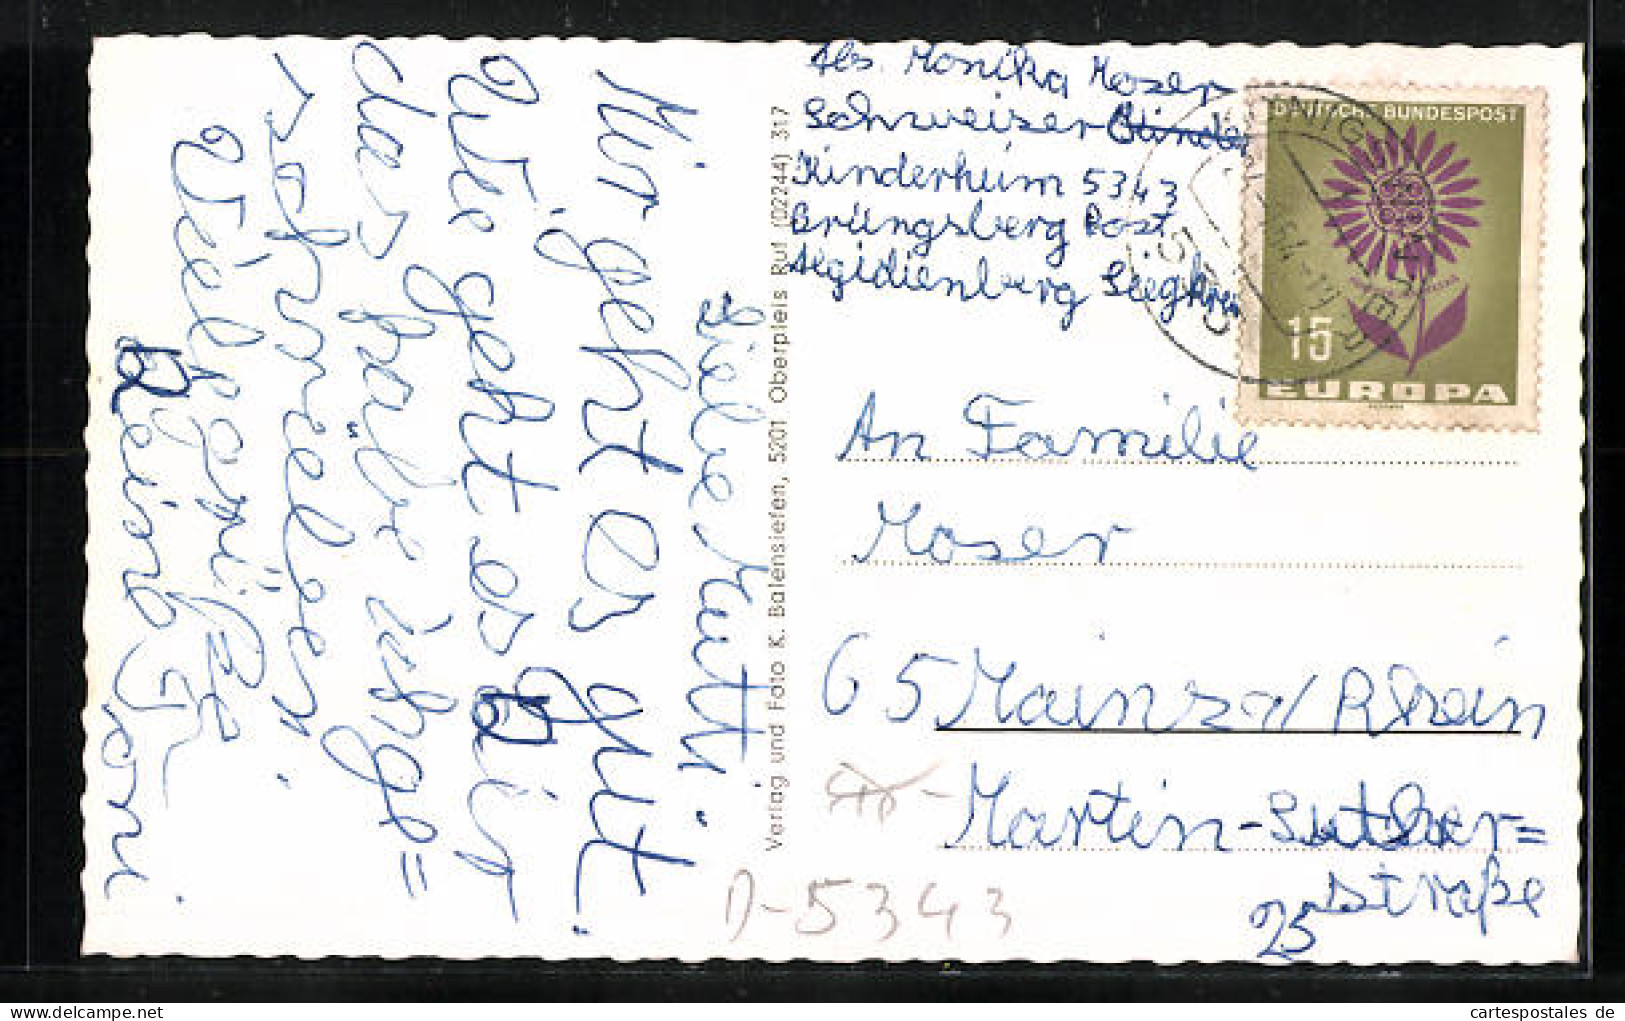 Liebe Mutti!
Mir geht es gut.
Wie geht es Dir
das hätte ich ge=
schrieben.
Viele grüße
Deine Toni.
Verlag und Foto K. Balensiefen, 5201 Oberpleis Ruf (02244) 317
Abs. Monika Moser
Schweizer Blinde
Kinderheim 5343
Brüngsberg Post
Aegidienberg Siegkreis
DEUTSCHE BUNDESPOST
15
EUROPA
An Familie
Moser
65 Mainz a/Rhein
Martin-Luther=
Straße
25
D-5343
cartespostales de